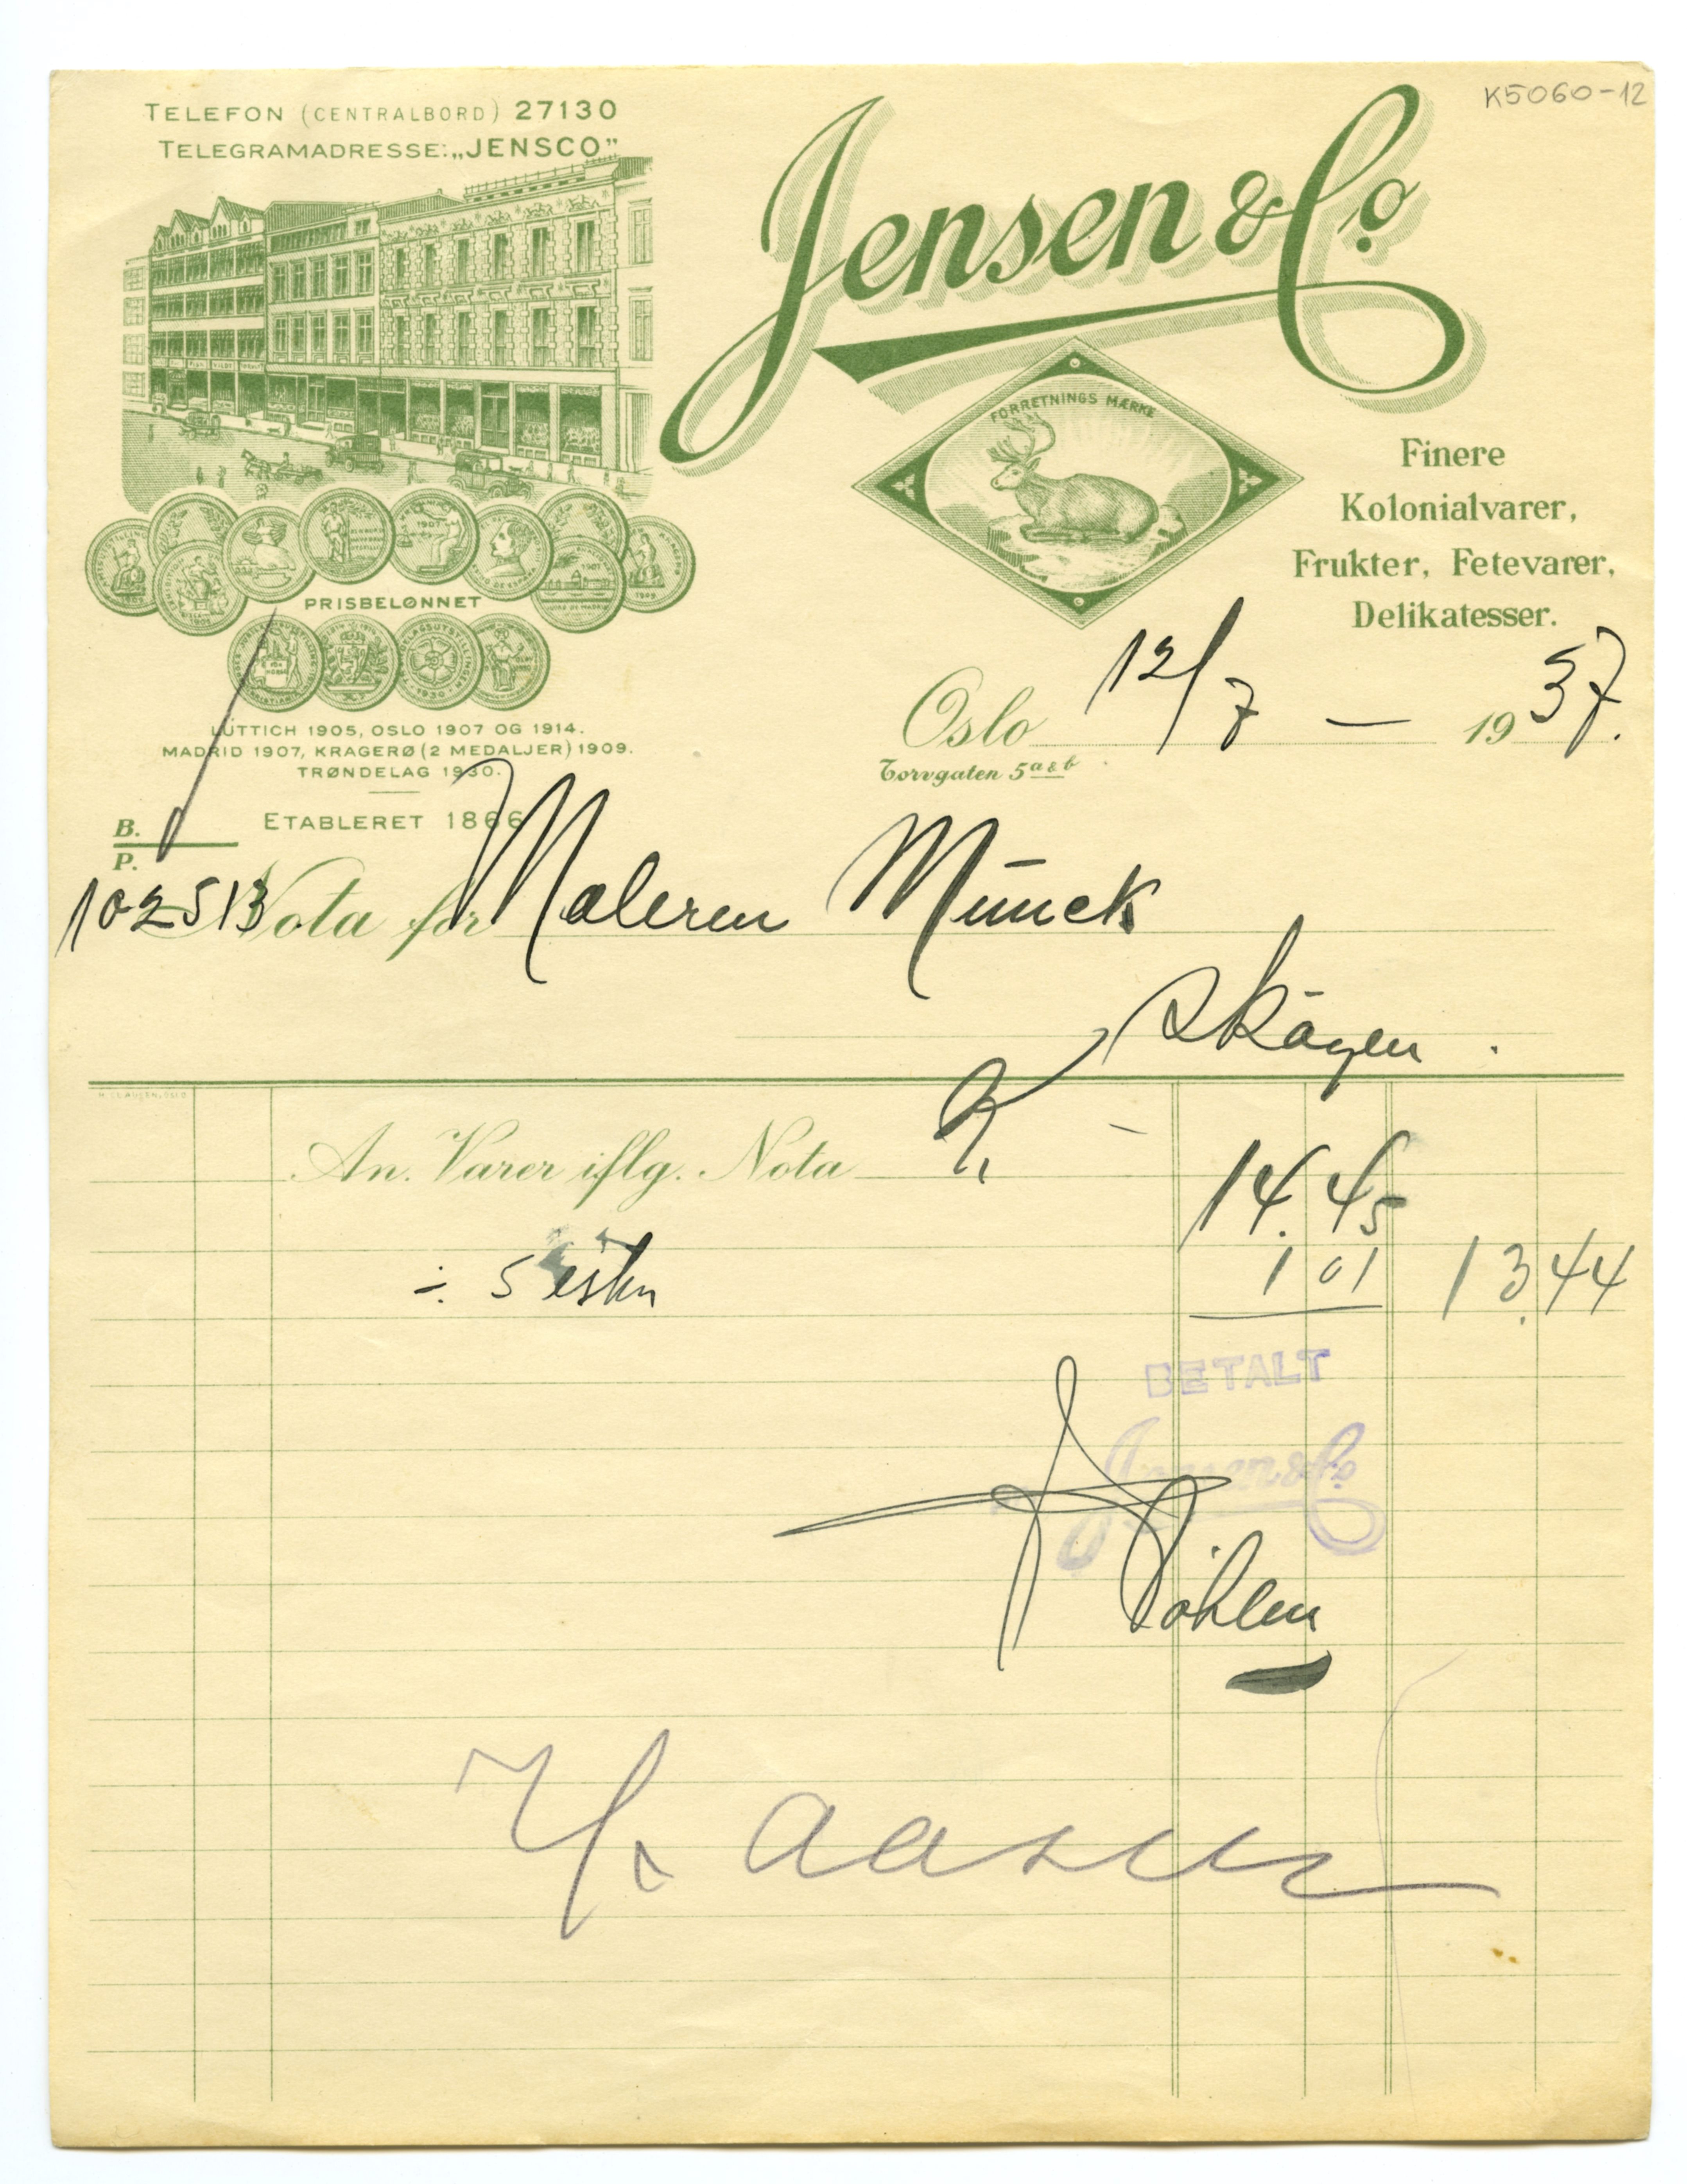 K5060-12
TELEFON (CENTRALBORD) 27130
TELEGRAMADRESSE: „JENSCO”
Jensen & Co
FORRETNINGS MÆRKE
Finere
Kolonialvarer,
Frukter, Fetevarer,
Delikatesser.
PRISBELØNNET
LÜTTICH 1905, OSLO 1907 OG 1914.
MADRID 1907, KRAGERØ (2 MEDALJER) 1909.
TRØNDELAG 1930.
ETABLERET 1866
Oslo 12/7 — 1937.
Torvgaten 5 a & b
B.
P.
102513 Nota for Maleren Munck
Skøyen.
H. CLAUSEN, OSLO
An. Varer iflg. Nota
14.45
÷ 5
1 01 13.44
BETALT
Jensen & Co
Aasen